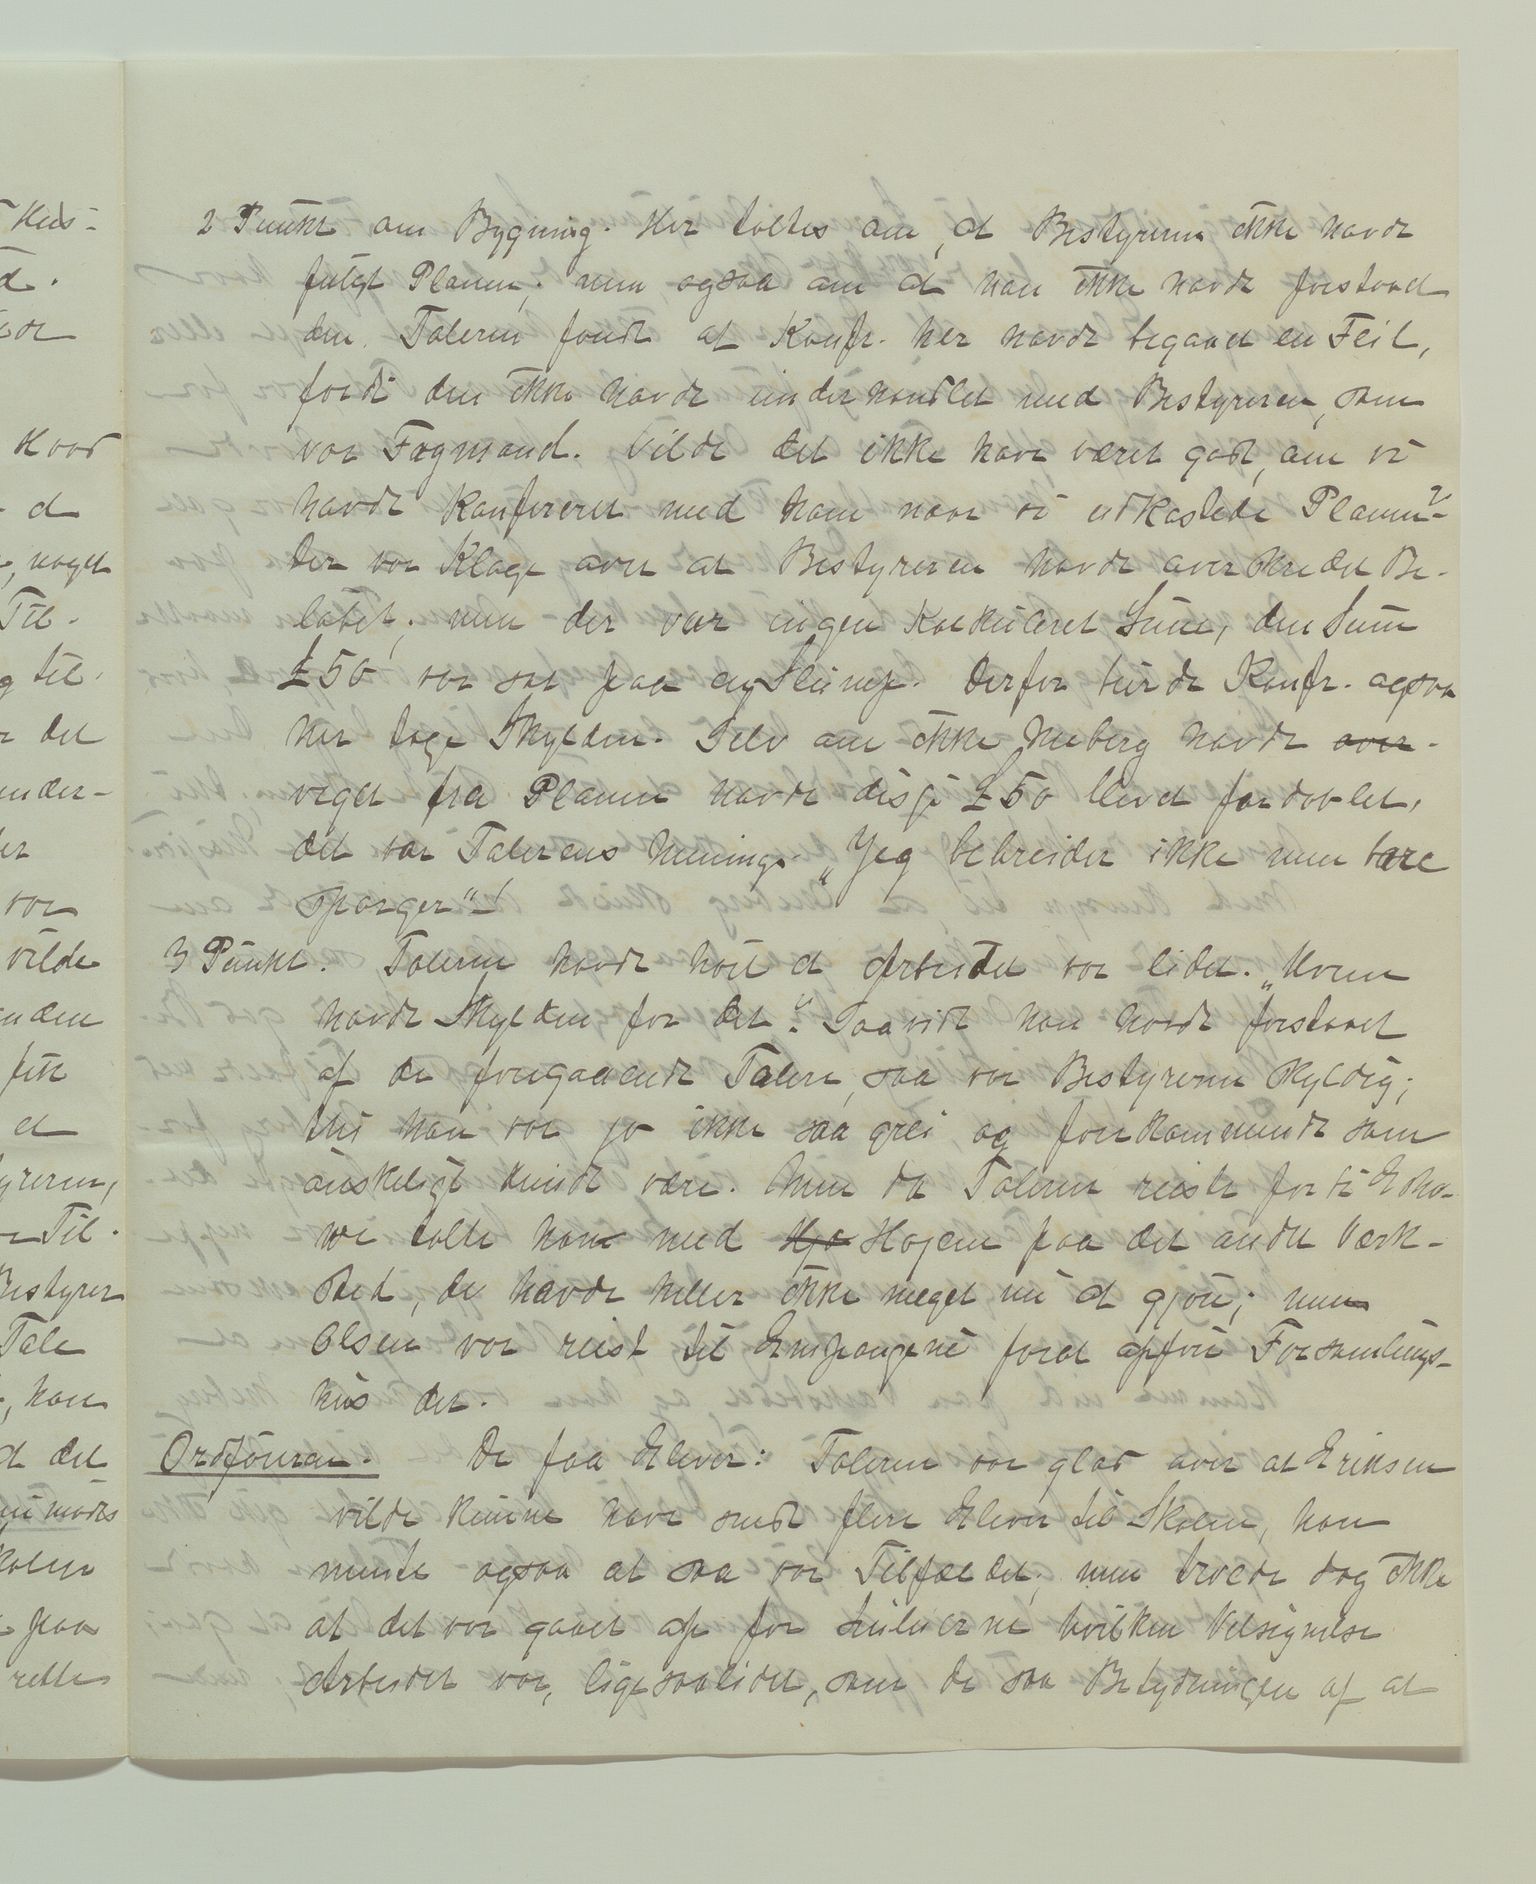 2 Punkt om Bygning. Her taltes om, at Bestyreren ikke havde
fulgt Planen; men ogsaa om at han ikke havde forstaaet
den. Taleren fandt at Konfr. her havde begaaet en Feil,
fordi den ikke havde underhandlet med Bestyreren, som
var Fagmand. Vilde det ikke have været godt, om vi
havde konfereret med ham naar vi udkastede Planen?
Der var Klage over at Bestyreren havde overskredet Be-
løbet; men der var ingen Kalkuleret Sum, den Sum
£50 var sat paa en Slump. Derfor burde Konfr. ogsaa
her tage Skylden. Selv om ikke Meberg havde over-
veget fra Planen havde disse £50 blevet fordoblet,
det var Talerens Mening. „Jeg bebreider ikke men bare
spørger"!
3 Punkt. Taleren havde hørt at Arbeidet var lidet. „Hvem
havde Skylden for det?" Saavidt han havde forstaaet
af de foregaaende Talere, saa var Bestyreren skyldig;
thi han var jo ikke saa grei og forekommende som
ønskeligt kunde være. Men da Taleren reiste forbi Esho-
we talte han med Hjo Højem paa det andet Værk-
sted, de havde heller ikke meget nu at gjøre; men
Olsen var reist til Empangeni forat opføre Forsamlings-
hus der.
Ordføreren. De faa Elever: Taleren var glad over at Eriksen
vilde kunne have sendt flere Elever til Skolen, han
mente ogsaa at saa var Tilfældet; men troede dog ikke
at det var gaaet op for Zuluerne hvilken Velsignelse
Arbeidet var, ligesaalidet, som de saa Betydningen af at
Hus-
Hvad
at
noget
Til-
til.
det
under-
var
vilde
fik
at
Til-
Bestyrer
Tale
han
at det
paa
rette